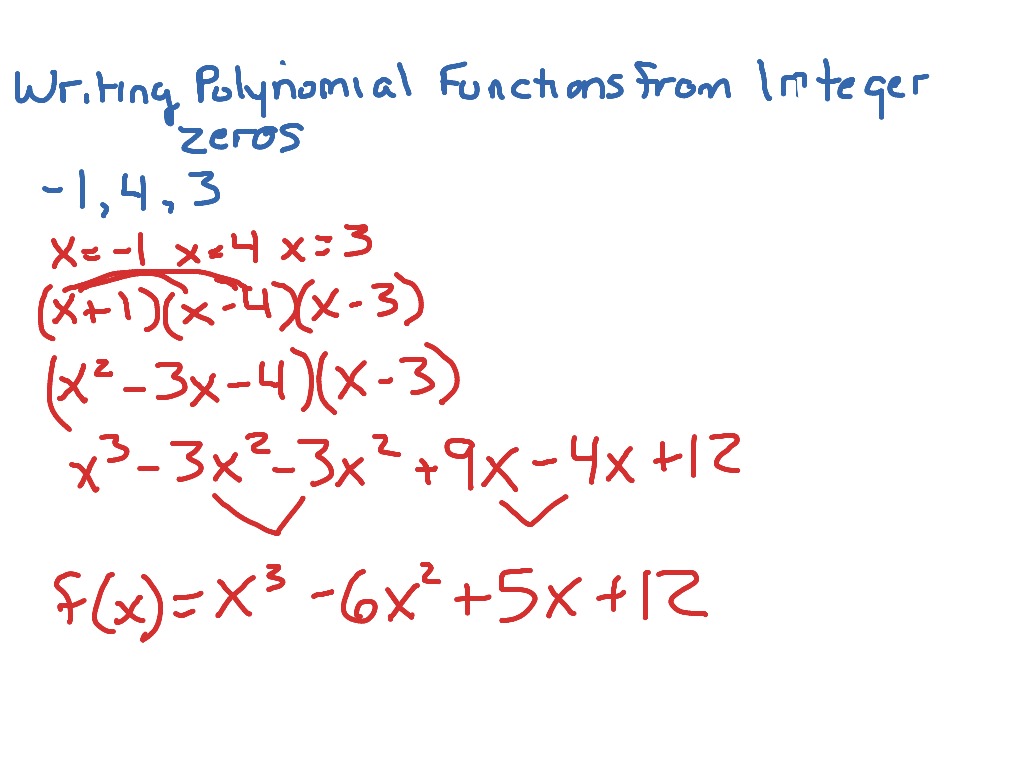 Writing Polynomial Functions from Integer
zeros
-1, 4, 3
x=-1 x=4 x=3
(x+1)(x-4)(x-3)
(x² - 3x - 4)(x - 3)
x³ - 3x² - 3x² + 9x - 4x + 12
f(x) = x³ - 6x² + 5x + 12